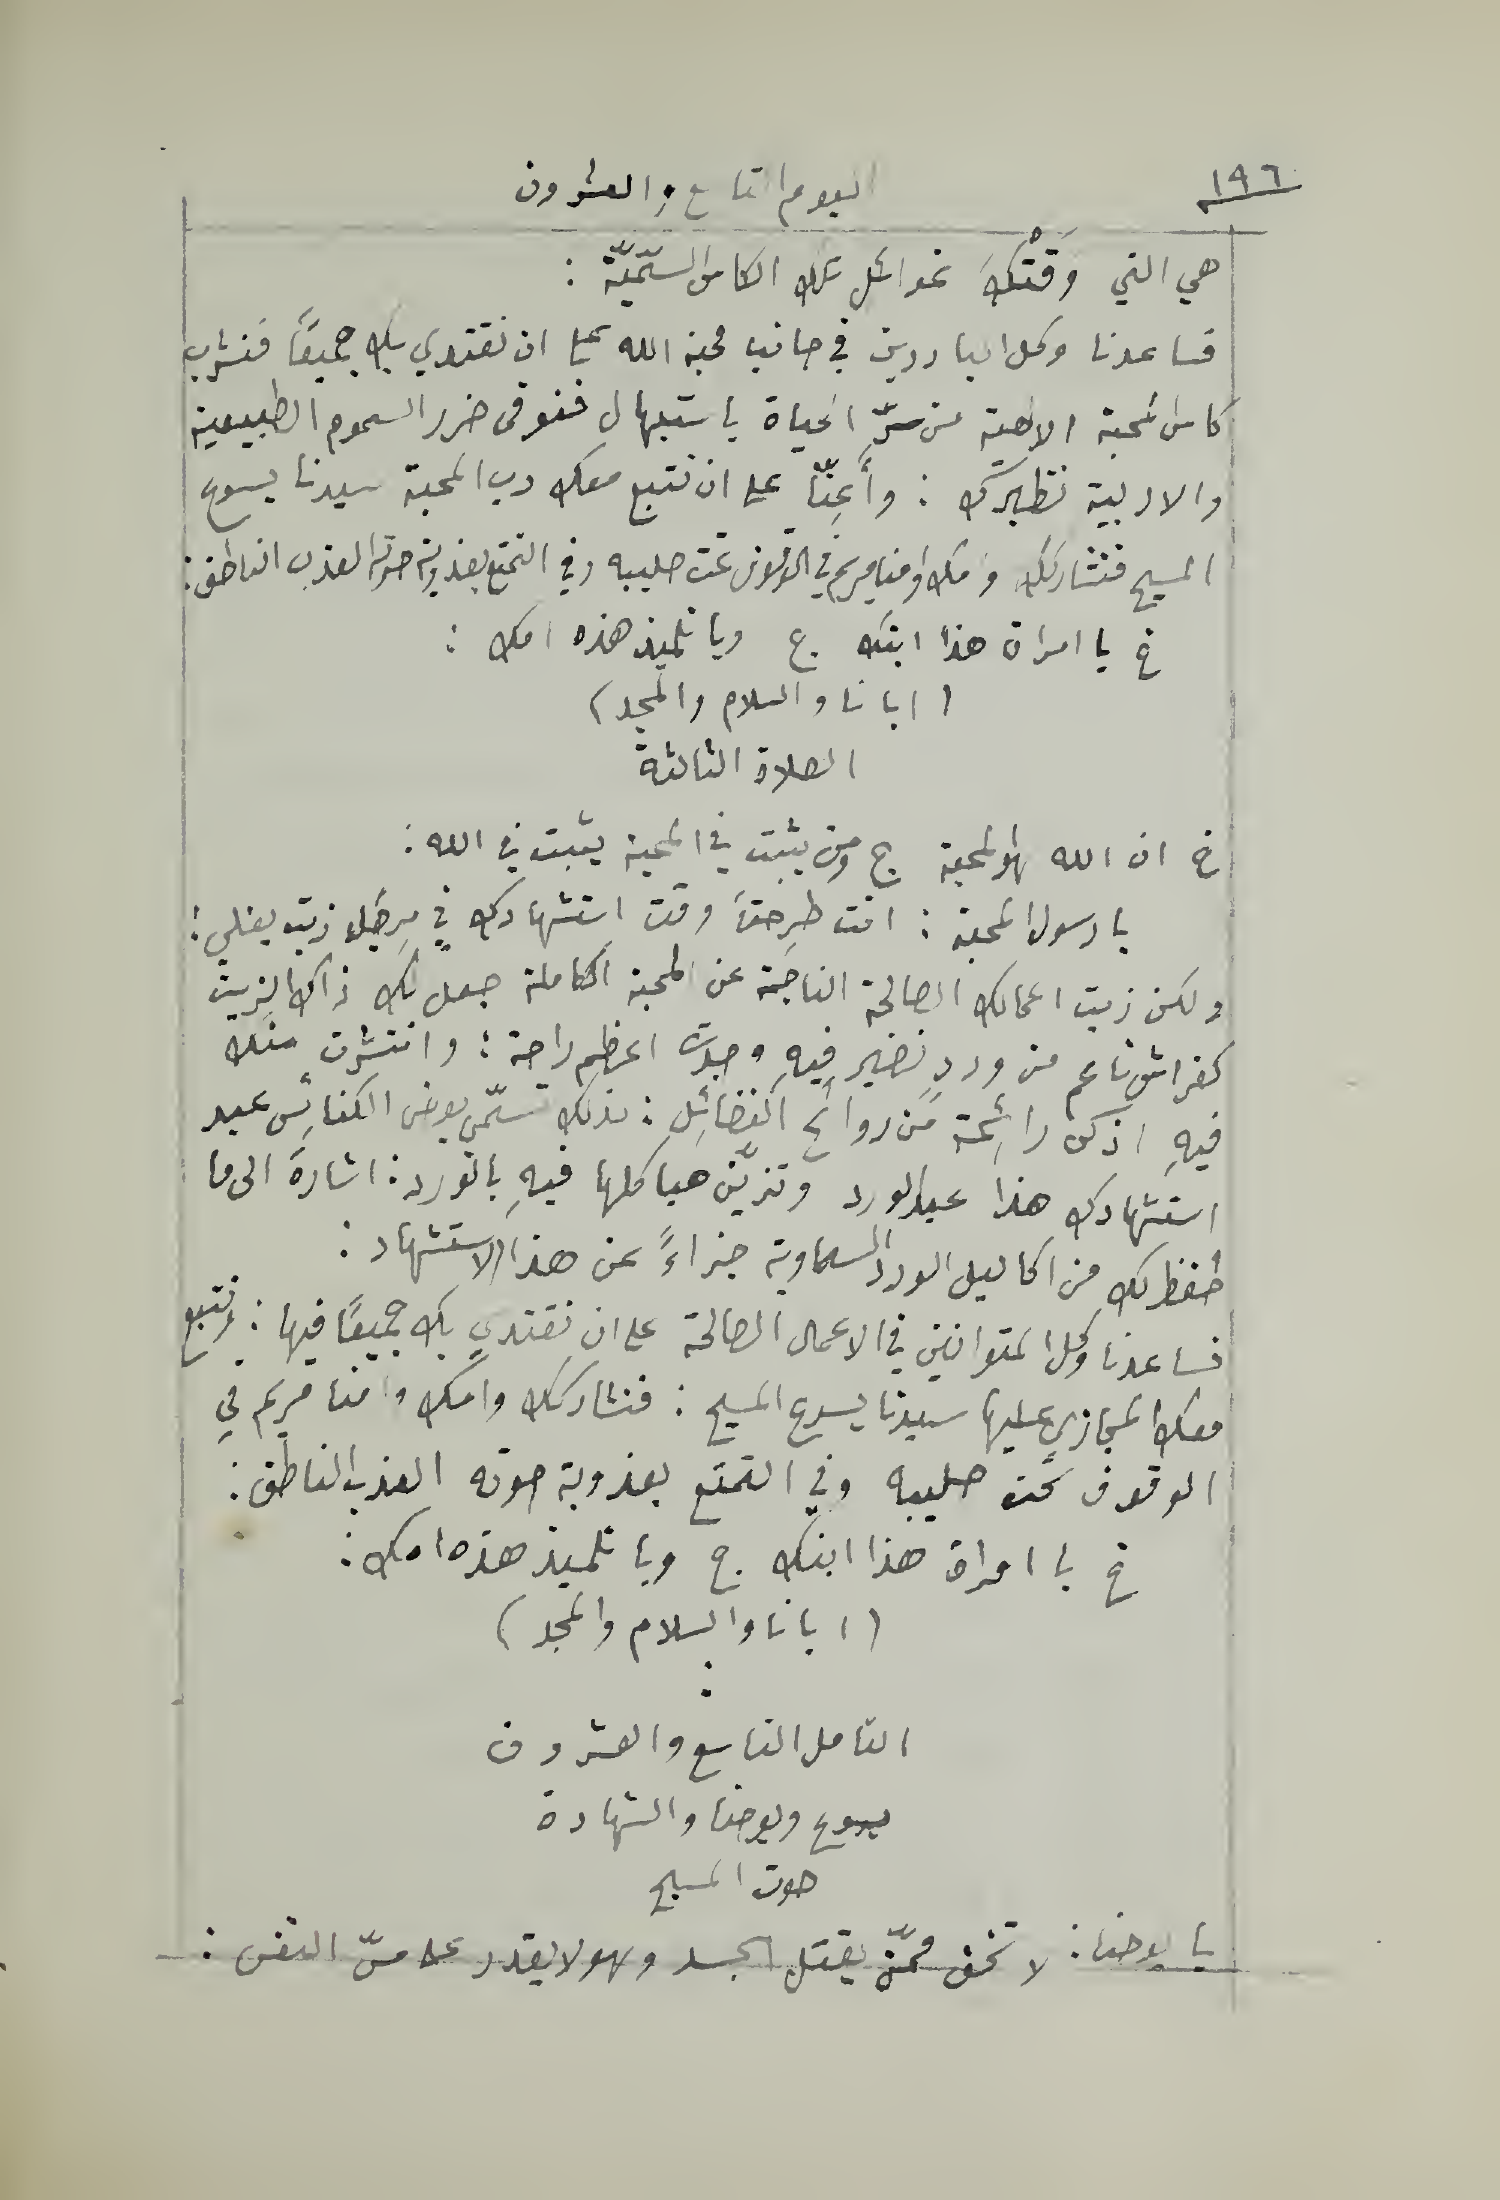 ١٩٦
اليوم التاسع والعشرون
هي التي وَقَتْكَ غوائل تلك الكاس السمّيّة :
فساعدنا وكل الباردين في جانب محبة الله على ان نقتدي بك جميعًا فنشرب
كاس المحبة الالهية من سرّ الحياة باستهال فنوقى ضرر السموم الطبيعية
والادبية نظيرك : وأَعِنّا على ان نتبع معك رب المحبة سيدنا يسوع
المسيح فنشاركك وامك وامنا مريم في الوقوف تحت صليبه وفي التمتع بعذوبة صوته العذب الناطق :
خ يا امراة هذا ابنك ج ويا تلميذ هذه امك :
( ابانا والسلام والمجد )
الصلاة الثالثة
خ ان الله لهو المحبة ج ومن يثبت في المحبة يثبت في الله :
يا رسول المحبة : انت طُرِحتَ وقت استشهادك في مِرجَل زيت يغلي :
ولكن زيت اعمالك الصالحة الناجمة عن المحبة الكاملة جعل لك ذاك الزيت
كفراش ناعم من وردٍ نضير فيهِ وجدتَ اعظم راحة : وانتشرت منك
فيهِ اذكى رائِحة من روائح الفضائِل : لذلك تسمّي بعض الكنائِس عيد
استشهادك هذا عيد الورد وتزيّن هياكلها فيهِ بالورد : اشارةً الى ما
حُفظ لك من اكاليل الورد السماوية جزاءً عن هذا الاستشهاد :
فساعدنا وكل المتوانين في الاعمال الصالحة على ان نقتدي بك جميعًا فيها : ونتبع
معك المجازي عليها سيدنا يسوع المسيح : فنشاركك وامك وامنا مريم في
الوقوف تحت صليبه وفي التمتع بعذوبة صوته العذب الناطق :
خ يا امراة هذا ابنك ج ويا تلميذ هذه امك :
( ابانا والسلام والمجد )
التامل التاسع والعشرون
يسوع ويوحنا والشهادة
صوت المسيح
يا يوحنا : لا تخف ممّن يقتل الجسد وهو لا يقدر على مسّ النفس :